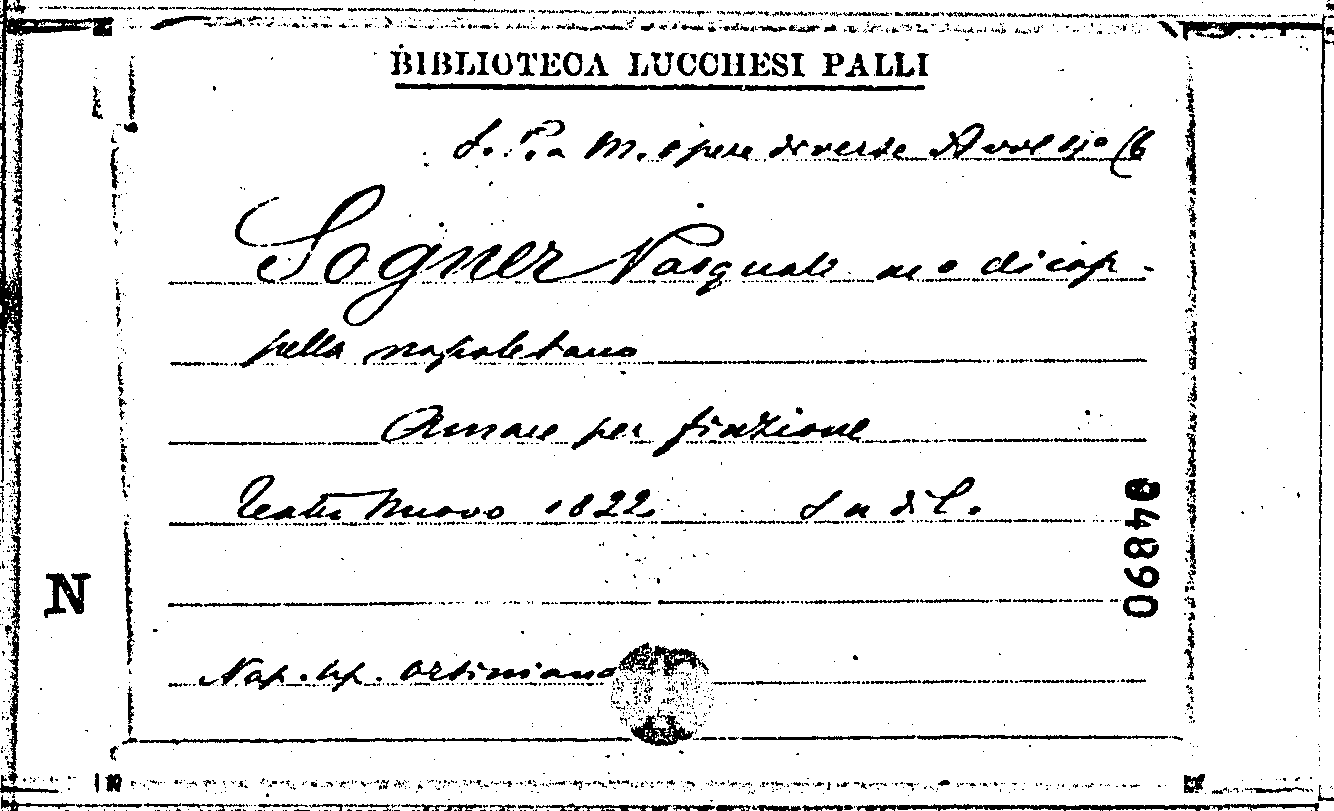 BIBLIOTECA LUCCHESI PALLI
M. opere diverse
Sogner Pasquale mo di cap-
pella napoletano
Amare per finzione
Teatro Nuovo 1822.
04890
N
Nap. tip. Orsiniano